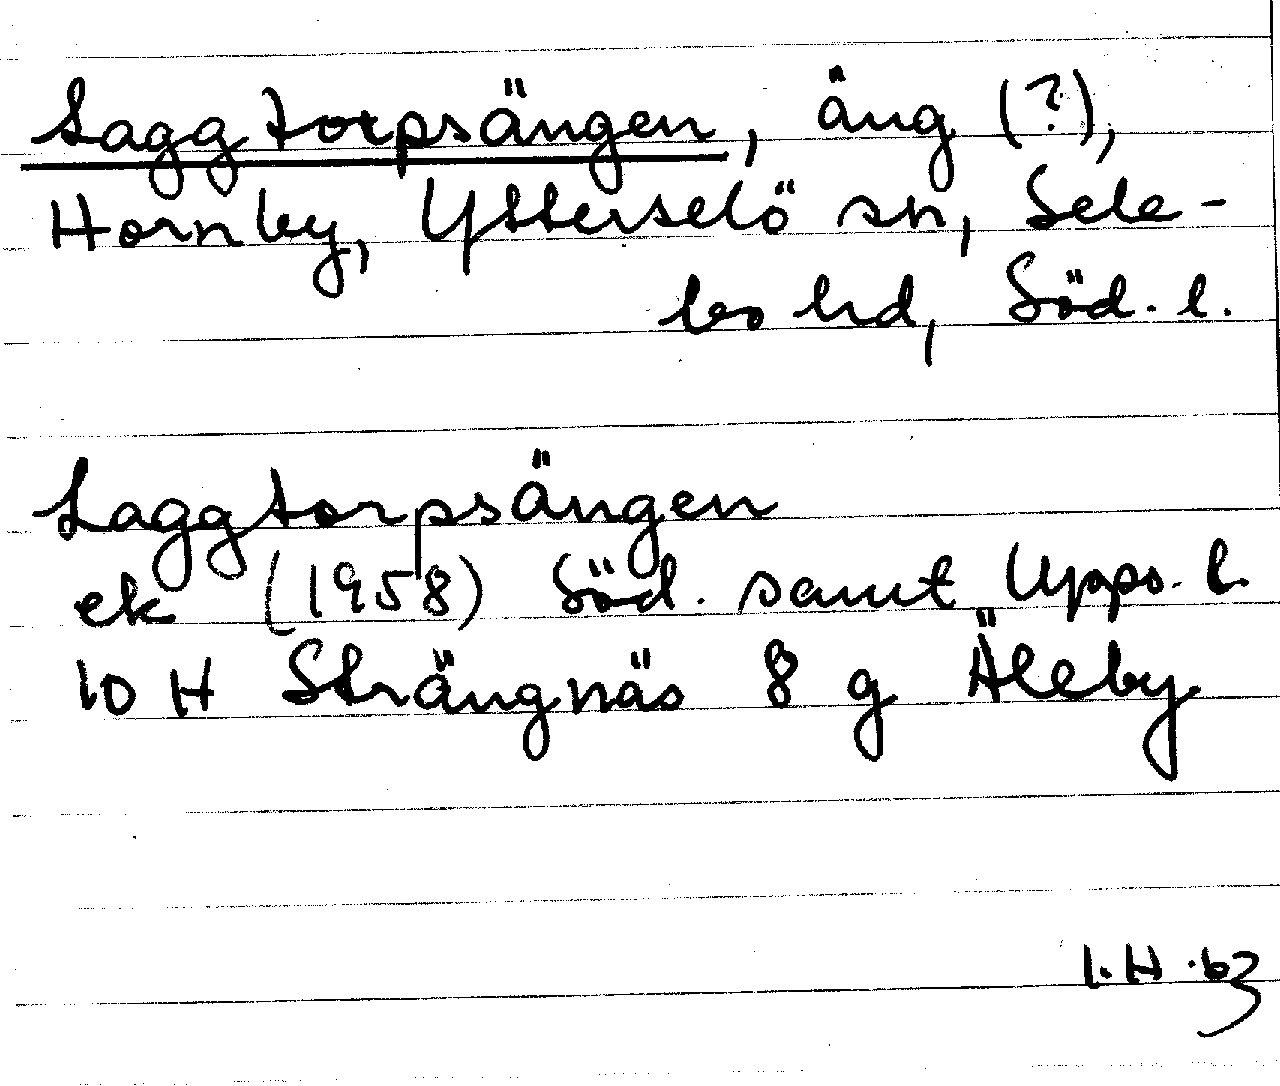 Laggtorpsängen, äng (?),
Hornby, Ytterselö sn, Sele-
bo hd, Söd. l.
Laggtorpsängen
ek (1958) Söd. samt Upps. l.
10 H Strängnäs 8 g Äleby
I.H. 63